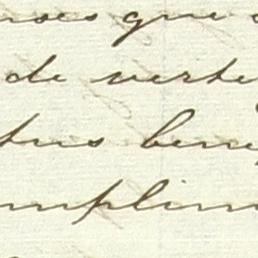 nses que
de verte
tus bene
mplim